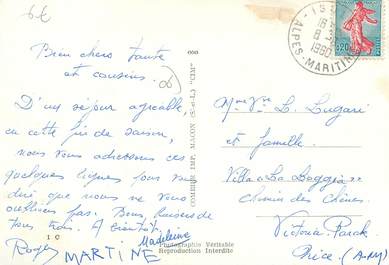 6€
Bien chers tante
et cousins.
06
D'un séjour agréable,
en cette fin de saison,
nous vous adressons ces
quelques lignes pour vous
dire que nous ne vous
oublions pas. Bons baisers de
tous trois. A bientôt.
Roger MARTINE Madeleine
COMBIER IMP. MACON (S.-et-L.) "CIM"
Photographie Véritable
Reproduction Interdite
18
8
1960
ALPES-MARITIMES
0,20
Mme Vve L. Lugari
et famille.
Villa "La Loggia"
Chemin des Chênes
Victoria Park
Nice (A-M)